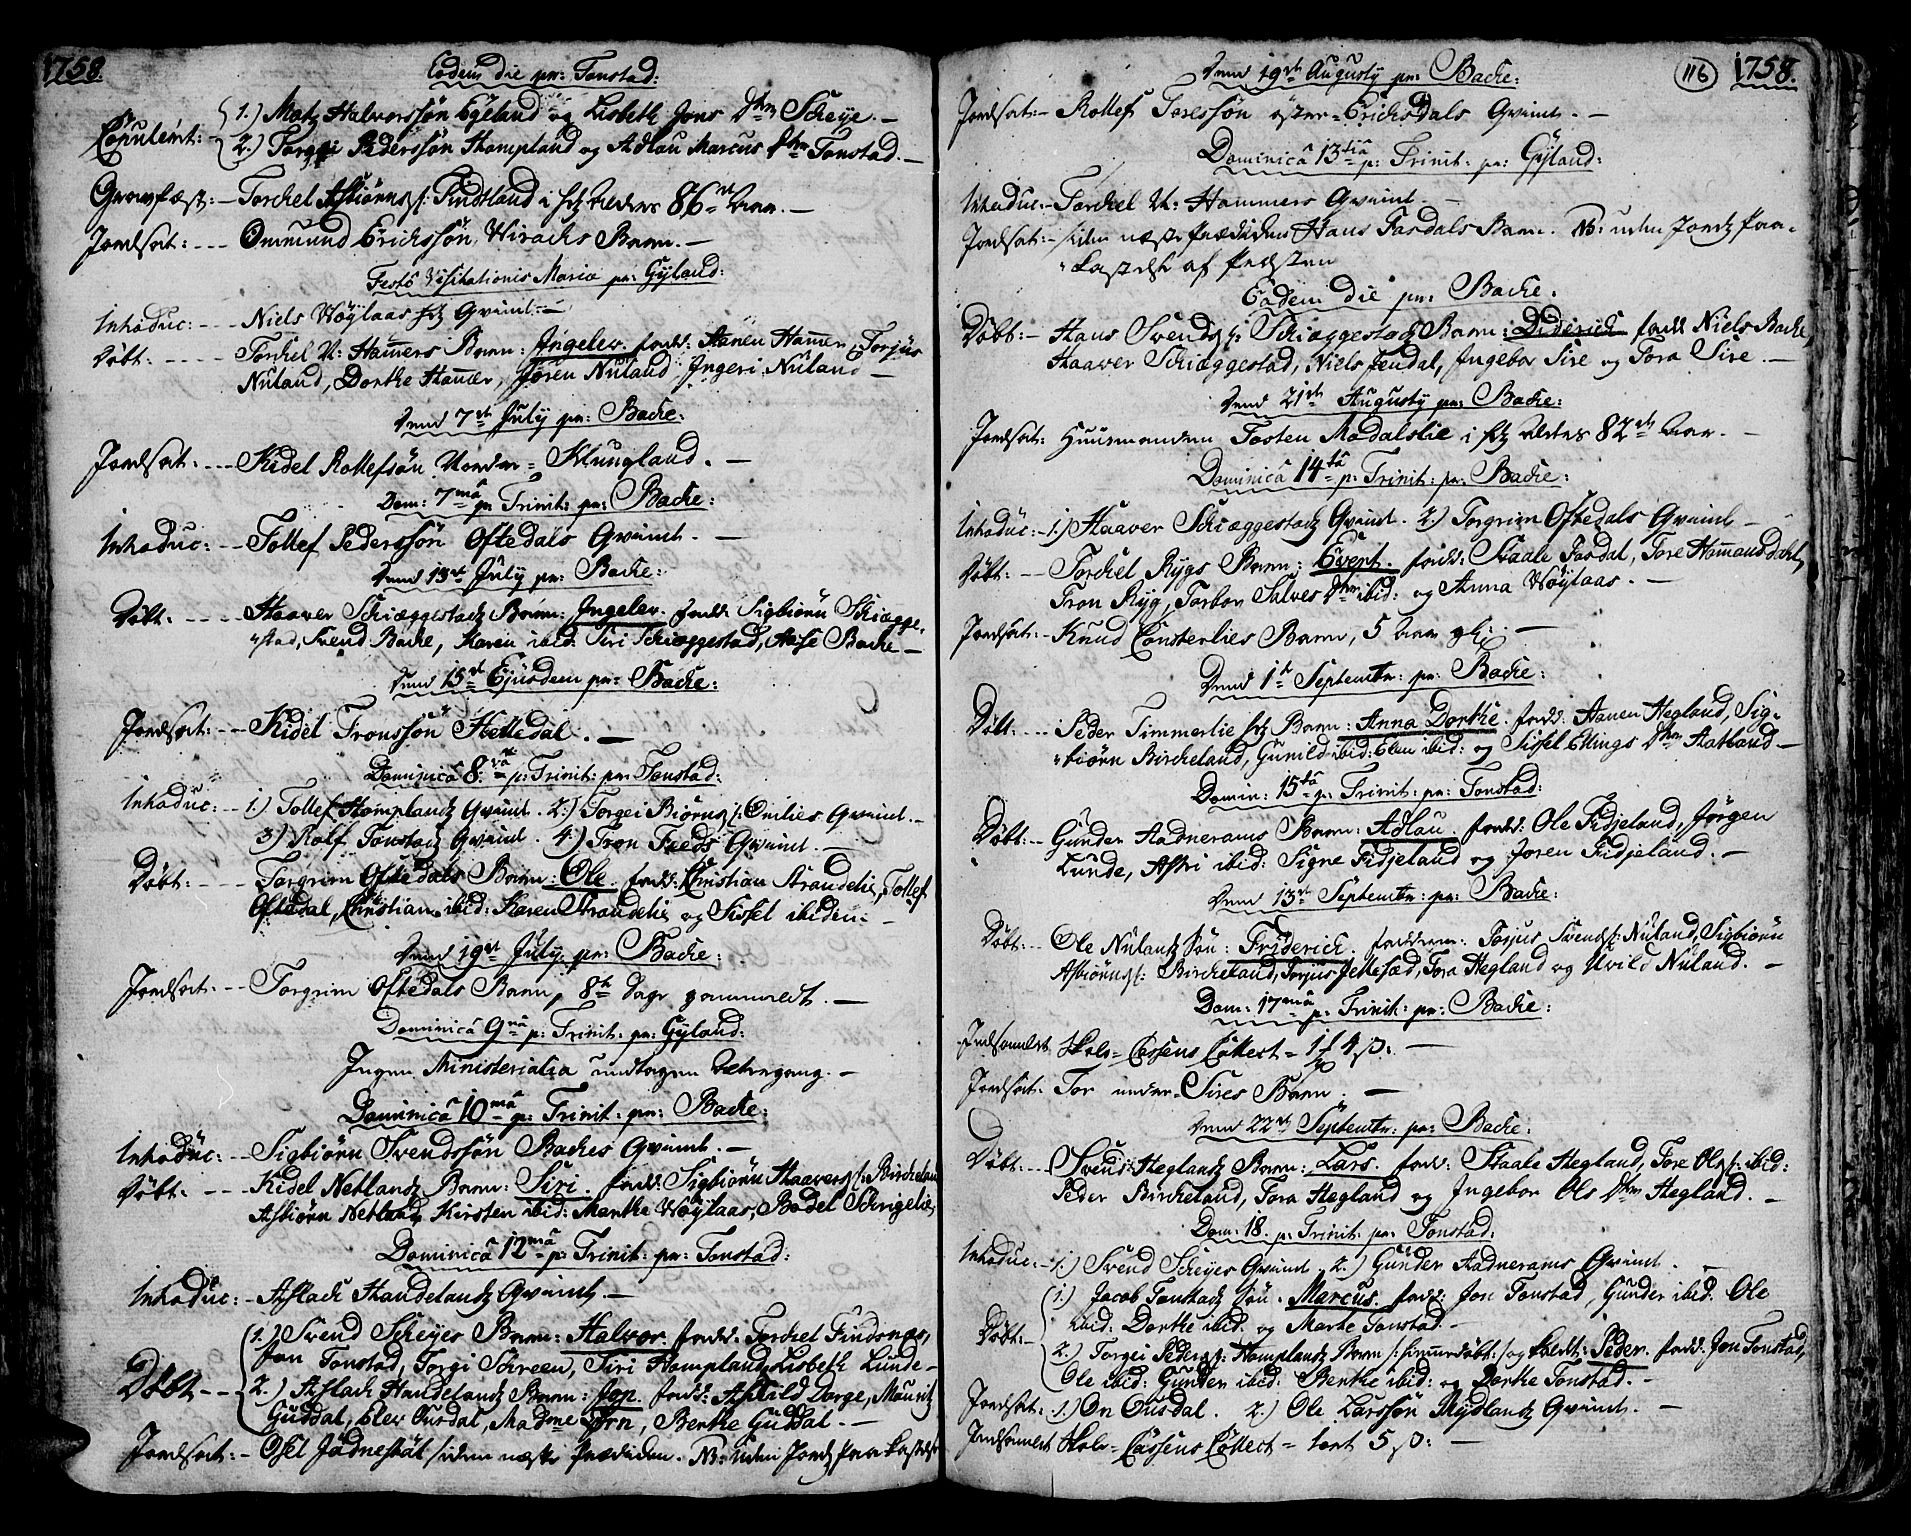 1758.
Eodem die pr: Tonstad:
Copulert: 1.) Matz Halvorssøn Egeland og Lisbeth Jons Dtr Scheye. –
2.) Torgei Pederssøn Hompland og Adlau Marcus Dtr Tonstad. –
Gravfæst: – Torchel Asbiørns: Findtland i sit Alders 86de Aar. –
Jordsat: --- Ommund Erichssøn Wirachs Barn. –
Festo Visitationis Mariæ pr: Gyland:
Introduc: --- Niels Høylaas Qvind. –
Døbt: ---- Torchel N: Hamers Barn: Ingelev. fadd: Aanen Hamer, Torjus
Nuland, Dorthe Hamer, Joren Nuland Ingeri Nuland –
Dend 7de July pr: Backe:
Jordsat: --- Kidel Rollefsøn Nordre = Klungland. –
Dom: 7ma p: Trinit: pr: Backe:
Introduc: -- Tollef Pederssøn Oftedals Qvind. –
Dend 13de July pr: Backe:
Døbt: ---- Haaver Schiæggestadz Barn: Ingelev. fadd: Sigbiørn Schiægge-
stad, Svend Backe, Karen ibid: Siri Schiæggestad, Aase Backe –
Dend 15de Ejusdem pr: Backe:
Jordsat: -- Kidel Tronssøn Helledal. –
Dominica 8va p: Trinit: pr: Tonstad:
Introduc: – 1.) Tollef Homplandz Qvind. 2.) Torgei Biørns: Omlies Qvind. –
3.) Rolf Tonstadz Qvind. 4.) Tron Feeds Qvind. –
Døbt: ---- Torgrim Oftedals Barn: Ole. fadd: Christian Strandelie, Tollef
Oftedal, Christian ibid: Karen Strandelie og Sissel ibidem –
Dend 19de July pr: Backe:
Jordsat: -- Torgrim Oftedals Barn, 8te Dage gammelt. –
Dominica 9na p: Trinit: pr: Gyland:
Ingen Ministerialia undtagen Altergang. –
Dominica 10ma p: Trinit: pr: Backe:
Introduc: – Sigbiørn Svendssøn Backes Qvind. –
Døbt: --- Kidel Netlandz Barn: Siri. fadd: Sigbiørn Haavers: Birckeland
Asbiørn Netland, Kirsten ibid: Marthe Høylaas, Bodel Schrigelie,
Dominica 12ma p: Trinit: pr: Tonstad:
Introduc: – Aslach Handelandz Qvind. –
Døbt -- 1.) Svend Scheyes Barn: Halvor. fadd: Torchel Findsnæs,
Jon Tonstad, Torgi Schreen, Siri Hompland, Lisbeth Lunde –
2.) Aslach Handelandz Barn: Jon. fadd: Dorge, Mauritz
Guddal, Elev Ousdal, Madme Ørn, Berthe Guddal. –
Jordsat: – Osel Jødnestøl siden næste Prædiken. NB: uden Jordz paakastelse
116 1758.
Dend 19de Augusty pr: Backe:
Jordsat: – Rollef Toressøn øster = Erichsdals Qvind. –
Dominica 13tia p: Trinit: pr: Gyland:
Introduc: – Torchel N: Hammers Qvind. –
Jordsat: – siden næste Prædiken Hans Fardals Barn. NB: uden Jordz paa-
kastelse af Præsten
Eodem die pr: Backe.
Døbt: – Hans Svends: Schiæggestadz Barn: Diderich fadd: Niels Backe,
Haaver Schiæggestad, Niels Jendal, Ingebor Sire og Tora Sire. –
Dend 21de Augusty pr: Backe:
Jordsat: Huusmanden Tosten Modalslie i sit Alders 82de Aar. –
Dominica 14ta p: Trinit: pr: Backe:
Introduc: – 1.) Haaver Schiæggestadz Qvind. 2.) Torgrim Oftedals Qvind –
Døbt: -- Torchel Rygs Barn: Evert. fadd: Staale Fardal, Tore Hamansdahl,
Tron Ryg, Torbor Salves Dtr ibid: og Anna Høylaas. –
Jordsat: – Knud Constenlies Barn, 5 Aar gl: –
Dend 1te Septembr: pr: Backe:
Døbt: --- Peder Timmerlie Barn: Anna Dorthe. fadd: Aanen Hegland, Sig-
biørn Birckeland, Gunild ibid: Elen ibid: og Sissel Ellings Dtr Aatland –
Domin: 15ta p: Trinit: pr: Tonstad:
Døbt: – Gunder Aadnerams Barn: Adlau. fadd: Ole Fidjeland, Jørgen
Lunde, Astri ibid: Signe Fidjeland og Joren Fidjeland. –
Dend 13de Septembr: pr: Backe:
Døbt: -- Ole Nulandz Søn: Friderich. fadderne: Torjus Svends: Nuland, Sigbiørn
Asbiørns: Birckeland, Torjus Jellesæd, Tora Hegland og Nuland. –
Dom: 17ma p: Trinit: pr: Backe:
Indsamlet Skole = Cassens Collect = 1 4 –
Jordsat: Tor under Sires Barn. –
Dend 22de Septembr: pr: Backe:
Døbt: -- Svend Heglandz Barn: Lars. fadd: Staale Hegland, Tore Ols: ibid:
Peder Birckeland, Tora Hegland og Ingebor Ols Dtr Hegland. –
Dom: 18. p: Trinit: pr: Tonstad:
Introduc: – 1.) Svend Scheyes Qvind 2.) Gunder Aadnerams Qvind. –
Døbt: – 1.) Jacob Tonstadz Søn. Marcus. fadd: Jon Tonstad, Gunder ibid. Ole
ibid. Dorthe ibid. og Marthe Tonstad. –
2.) Torgei Peders: Homplandz Barn /: hiemmedøbt :/ og kaldt: Peder. fadd: Jon Tonstad,
Ole ibid: Gunder ibid: Berthe ibid: og Dorthe Tonstad. –
Jordsat: – 1.) On Ousdal. 2.) Ole Larssøn Mydlandz Qvind. –
Indsamlet Skole = Cassens Collect = 5 –